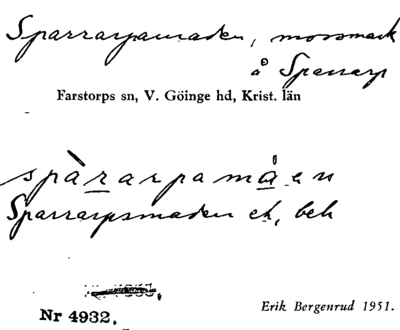 Sparrarpamaden, mossmark
å Sparrarp
Farstorps sn, V. Göinge hd, Krist. län
spàrarpamåen
Sparrarpsmaden ek, beb
Nr 4932.
Erik Bergenrud 1951.